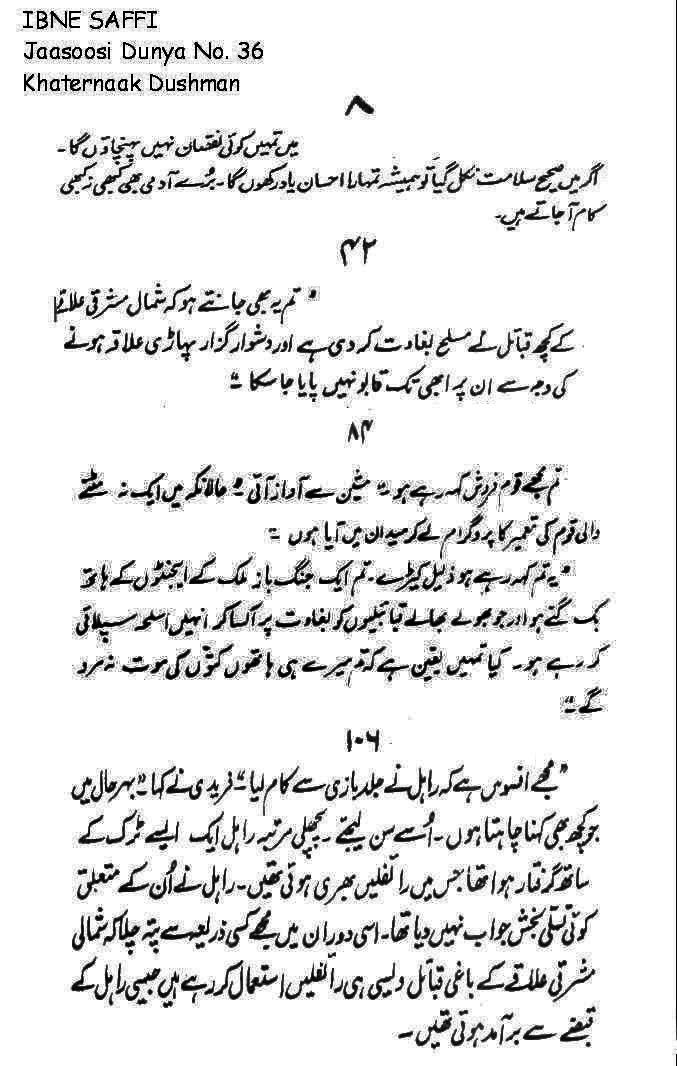 IBNE SAFFI
Jaasoosi Dunya No. 36
Khaternaak Dushman
۸
میں تمہیں کوئی نقصان نہیں پہنچاؤں گا۔
اگر میں صحیح سلامت نکل گیا تو ہمیشہ تمہارا احسان یاد رکھوں گا۔ بُرے آدمی بھی کبھی نہ کبھی
کام آجاتے ہیں۔
۴۲
"تم یہ بھی جانتے ہو کہ شمال مشرقی علاقے
کے کچھ قبائل نے مسلح بغاوت کر دی ہے اور دشوار گزار پہاڑی علاقہ ہونے
کی وجہ سے ان پر ابھی تک قابو نہیں پایا جا سکا"
۸۴
تم مجھے قوم فروش کہہ رہے ہو" مشین سے آواز آئی" حالانکہ میں ایک نہ مٹنے
والی قوم کی تعمیر کا پروگرام لے کر میدان میں آیا ہوں"
"یہ تم کہہ رہے ہو ذلیل کیڑے۔ تم ایک جنگ باز ملک کے ایجنٹوں کے ہاتھ
بک گئے ہو اور جو بھولے بھالے قبائیلیوں کو بغاوت پر اکسا کر انہیں اسلحہ سپلائی
کر رہے ہو۔ کیا تمہیں یقین ہے کہ تم میرے ہی ہاتھوں کتوں کی موت نہ مرو
گے"
۱۰۶
"مجھے افسوس ہے کہ راہل نے جلد بازی سے کام لیا" فریدی نے کہا" بہرحال میں
جو کچھ بھی کہنا چاہتا ہوں۔ اُسے سن لیجئے۔ پچھلی مرتبہ راہل ایک ایسے ٹرک کے
ساتھ گرفتار ہوا تھا جس میں رائفلیں بھری ہوئی تھیں۔ راہل نے اُن کے متعلق
کوئی تسلی بخش جواب نہیں دیا تھا۔ اسی دوران میں مجھے کسی ذریعہ سے پتہ چلا کہ شمالی
مشرقی علاقے کے باغی قبائل ویسی ہی رائفلیں استعمال کر رہے ہیں جیسی راہل کے
قبضے سے برآمد ہوئی تھیں۔